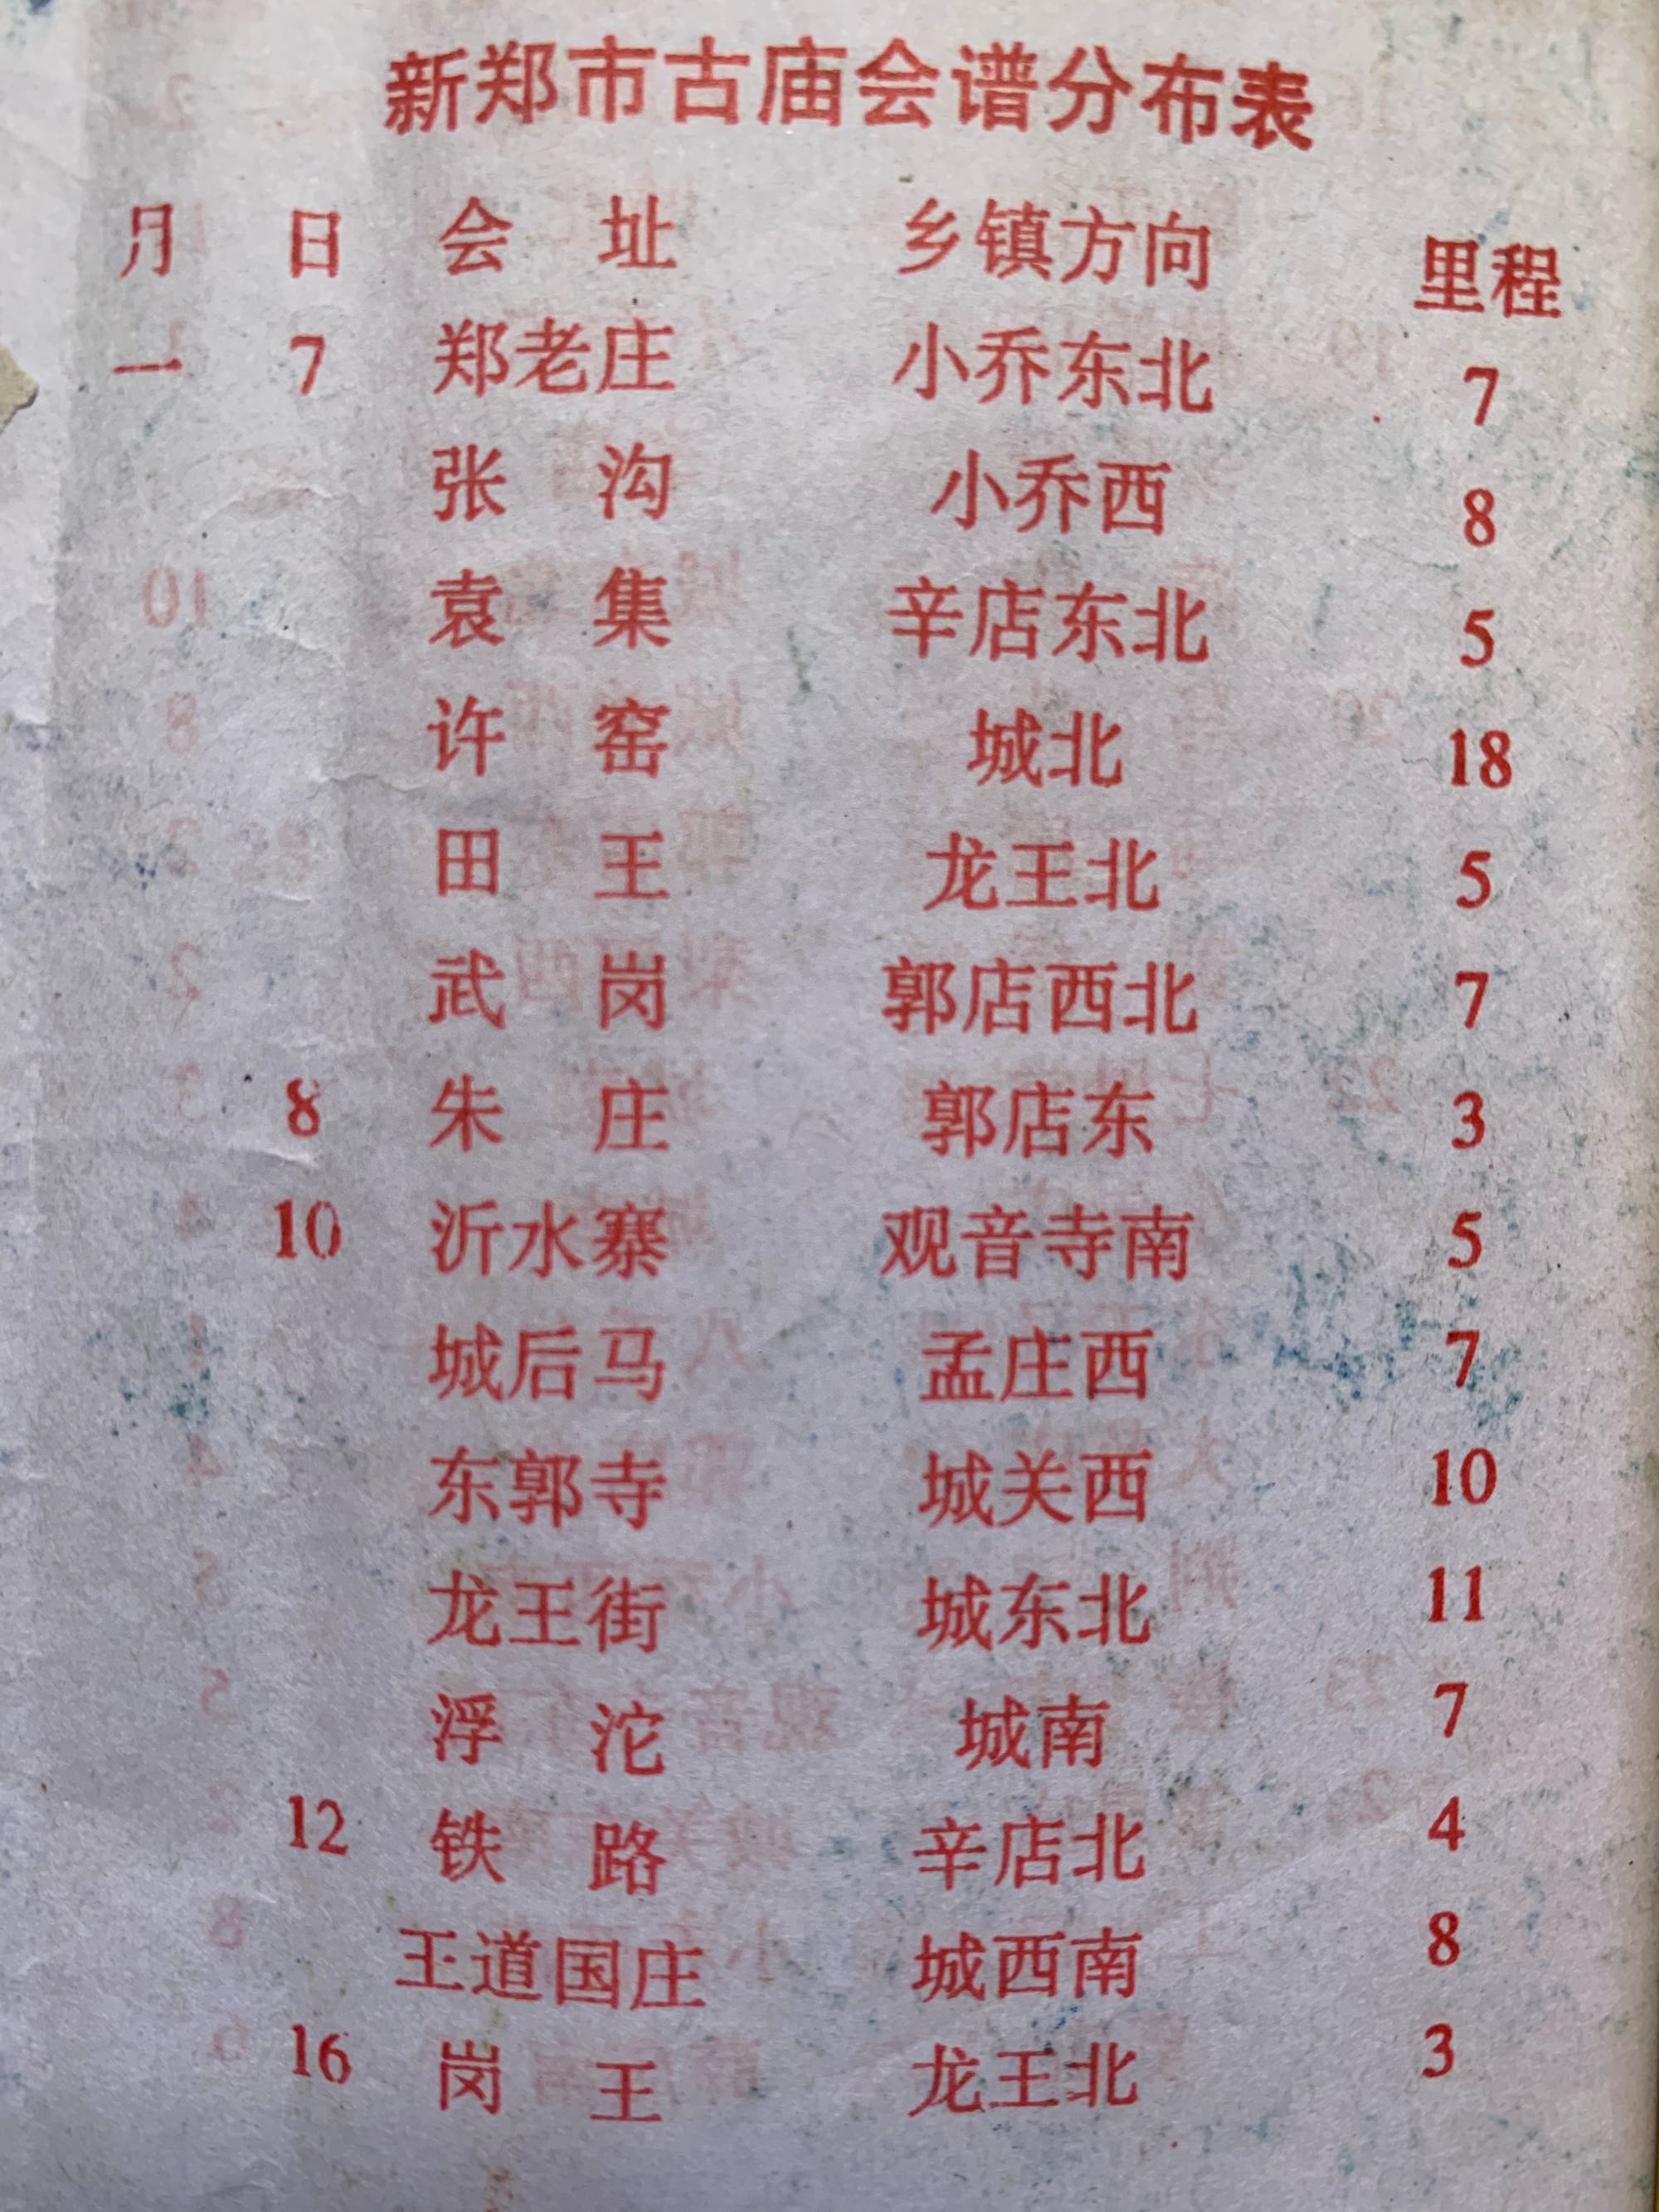 新郑市古庙会谱分布表
月 日 会 址 乡镇方向 里程
一 7 郑老庄 小乔东北 7
张 沟 小乔西 8
袁 集 辛店东北 5
许 窑 城北 18
田 王 龙王北 5
武 岗 郭店西北 7
8 朱 庄 郭店东 3
10 沂水寨 观音寺南 5
城后马 孟庄西 7
东郭寺 城关西 10
龙王街 城东北 11
浮 沱 城南 7
12 铁 路 辛店北 4
王道国庄 城西南 8
16 岗 王 龙王北 3